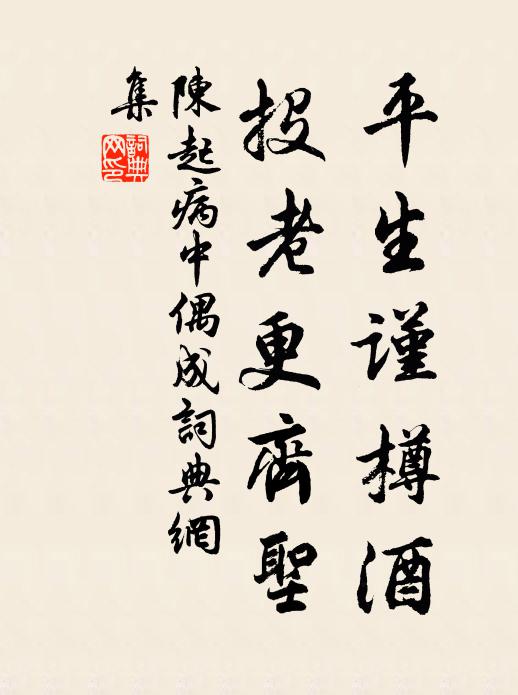 平生謹樽酒
投老更齋聖
陳起病中偶成詞典網
集
詞典
网印